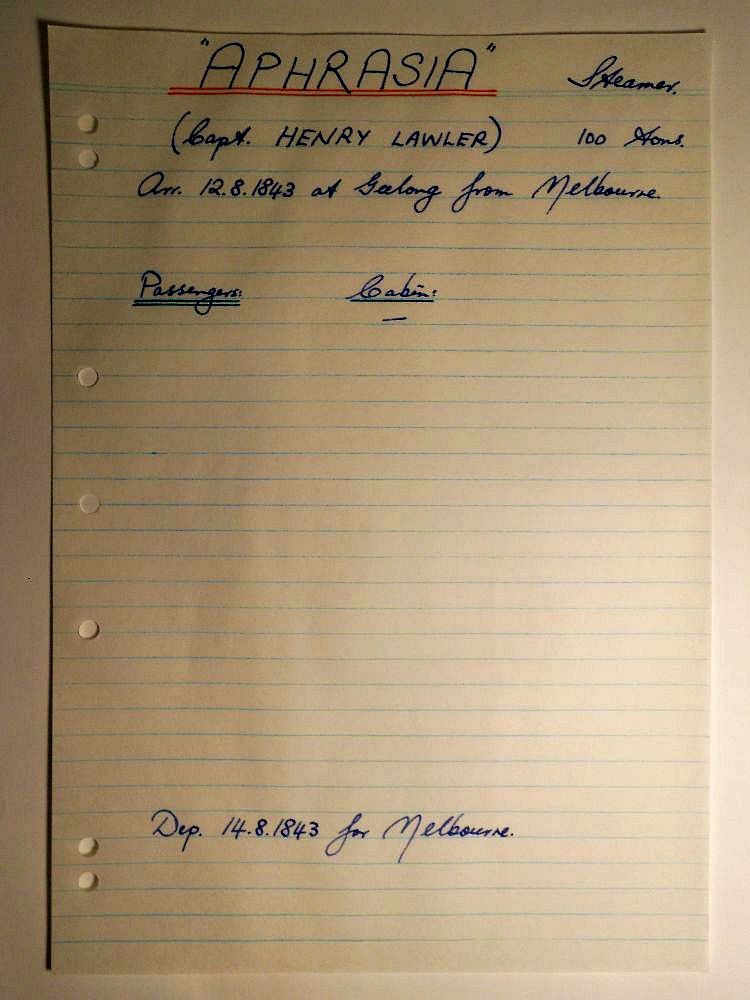 "APHRASIA" Steamer.
(Capt. HENRY LAWLER) 100 Tons.
Arr. 12.8.1843 at Geelong from Melbourne.
Passengers: Cabin:
—
Dep. 14.8.1843 for Melbourne.